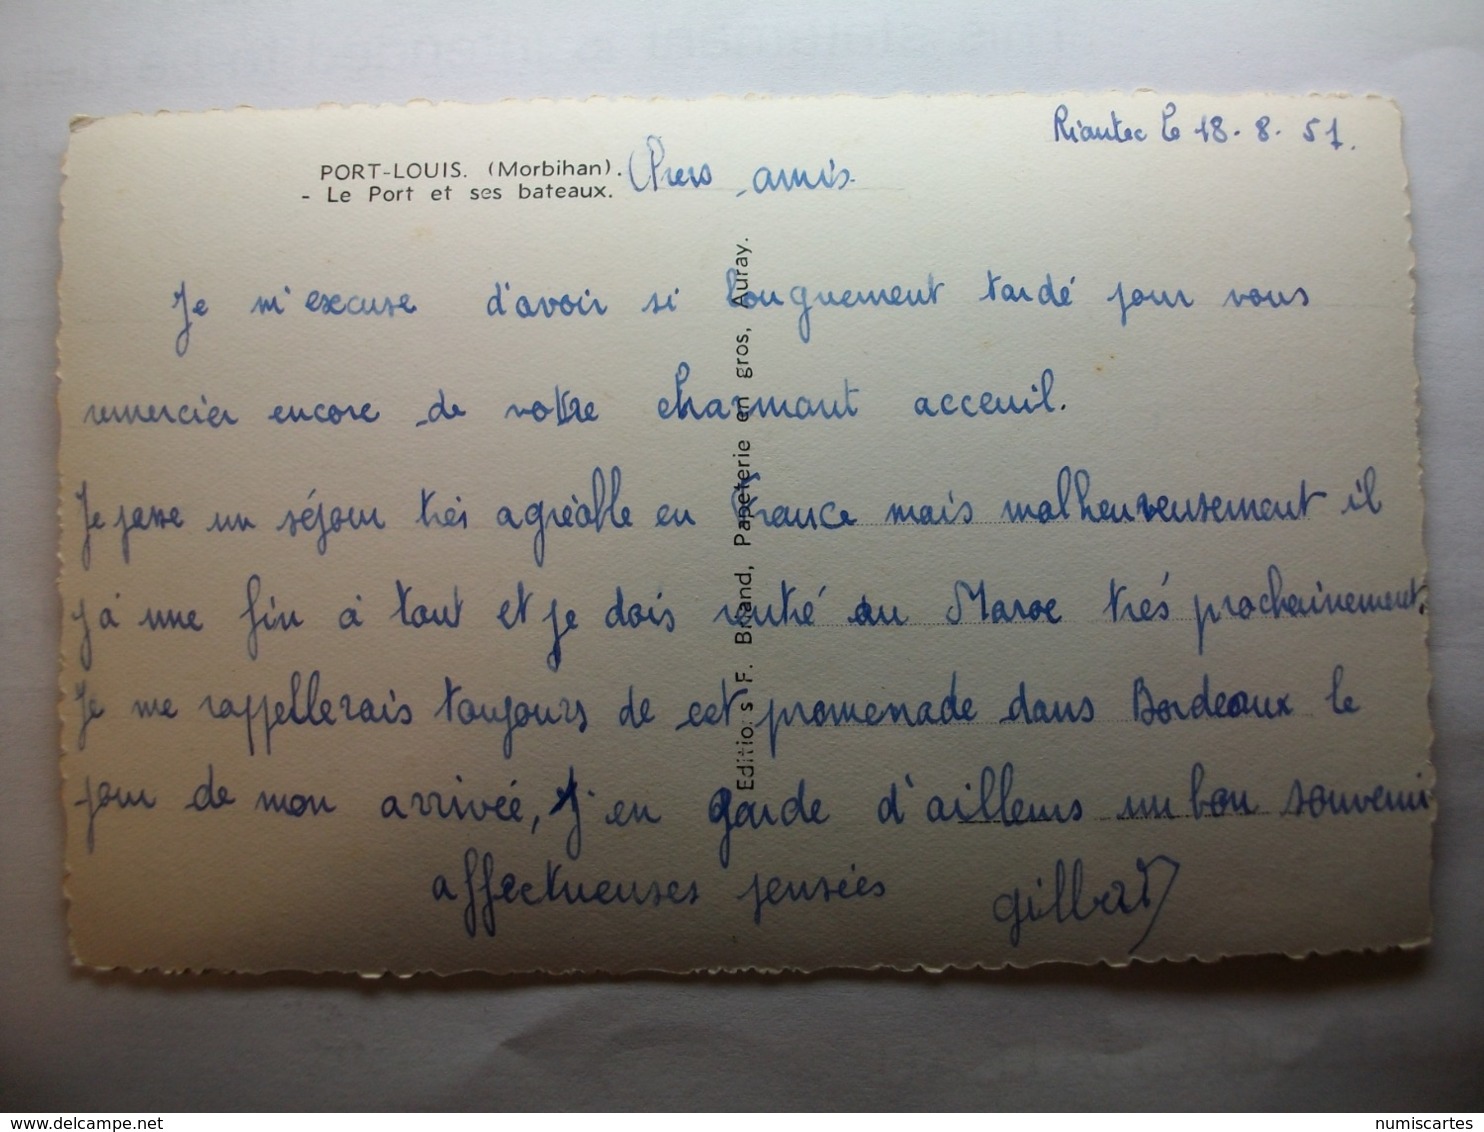 Riantec le 18-8-57.
PORT-LOUIS. (Morbihan).
- Le Port et ses bateaux.
Chers amis.
Je m'excuse d'avoir si longuement tardé pour vous
remercier encore de votre charmant acceuil.
Je passe un séjour trés agréable en France mais malheureusement il
y à une fin à tout et je dois rentré au Maroc trés prochainement.
Je me rappellerais toujours de cet promenade dans Bordeaux le
jour de mon arrivée, J'en garde d'ailleurs un bon souvenir
affectueuses pensées
Gilbert
Editions F. Briand, Papeterie en gros, Auray.
numiscartes